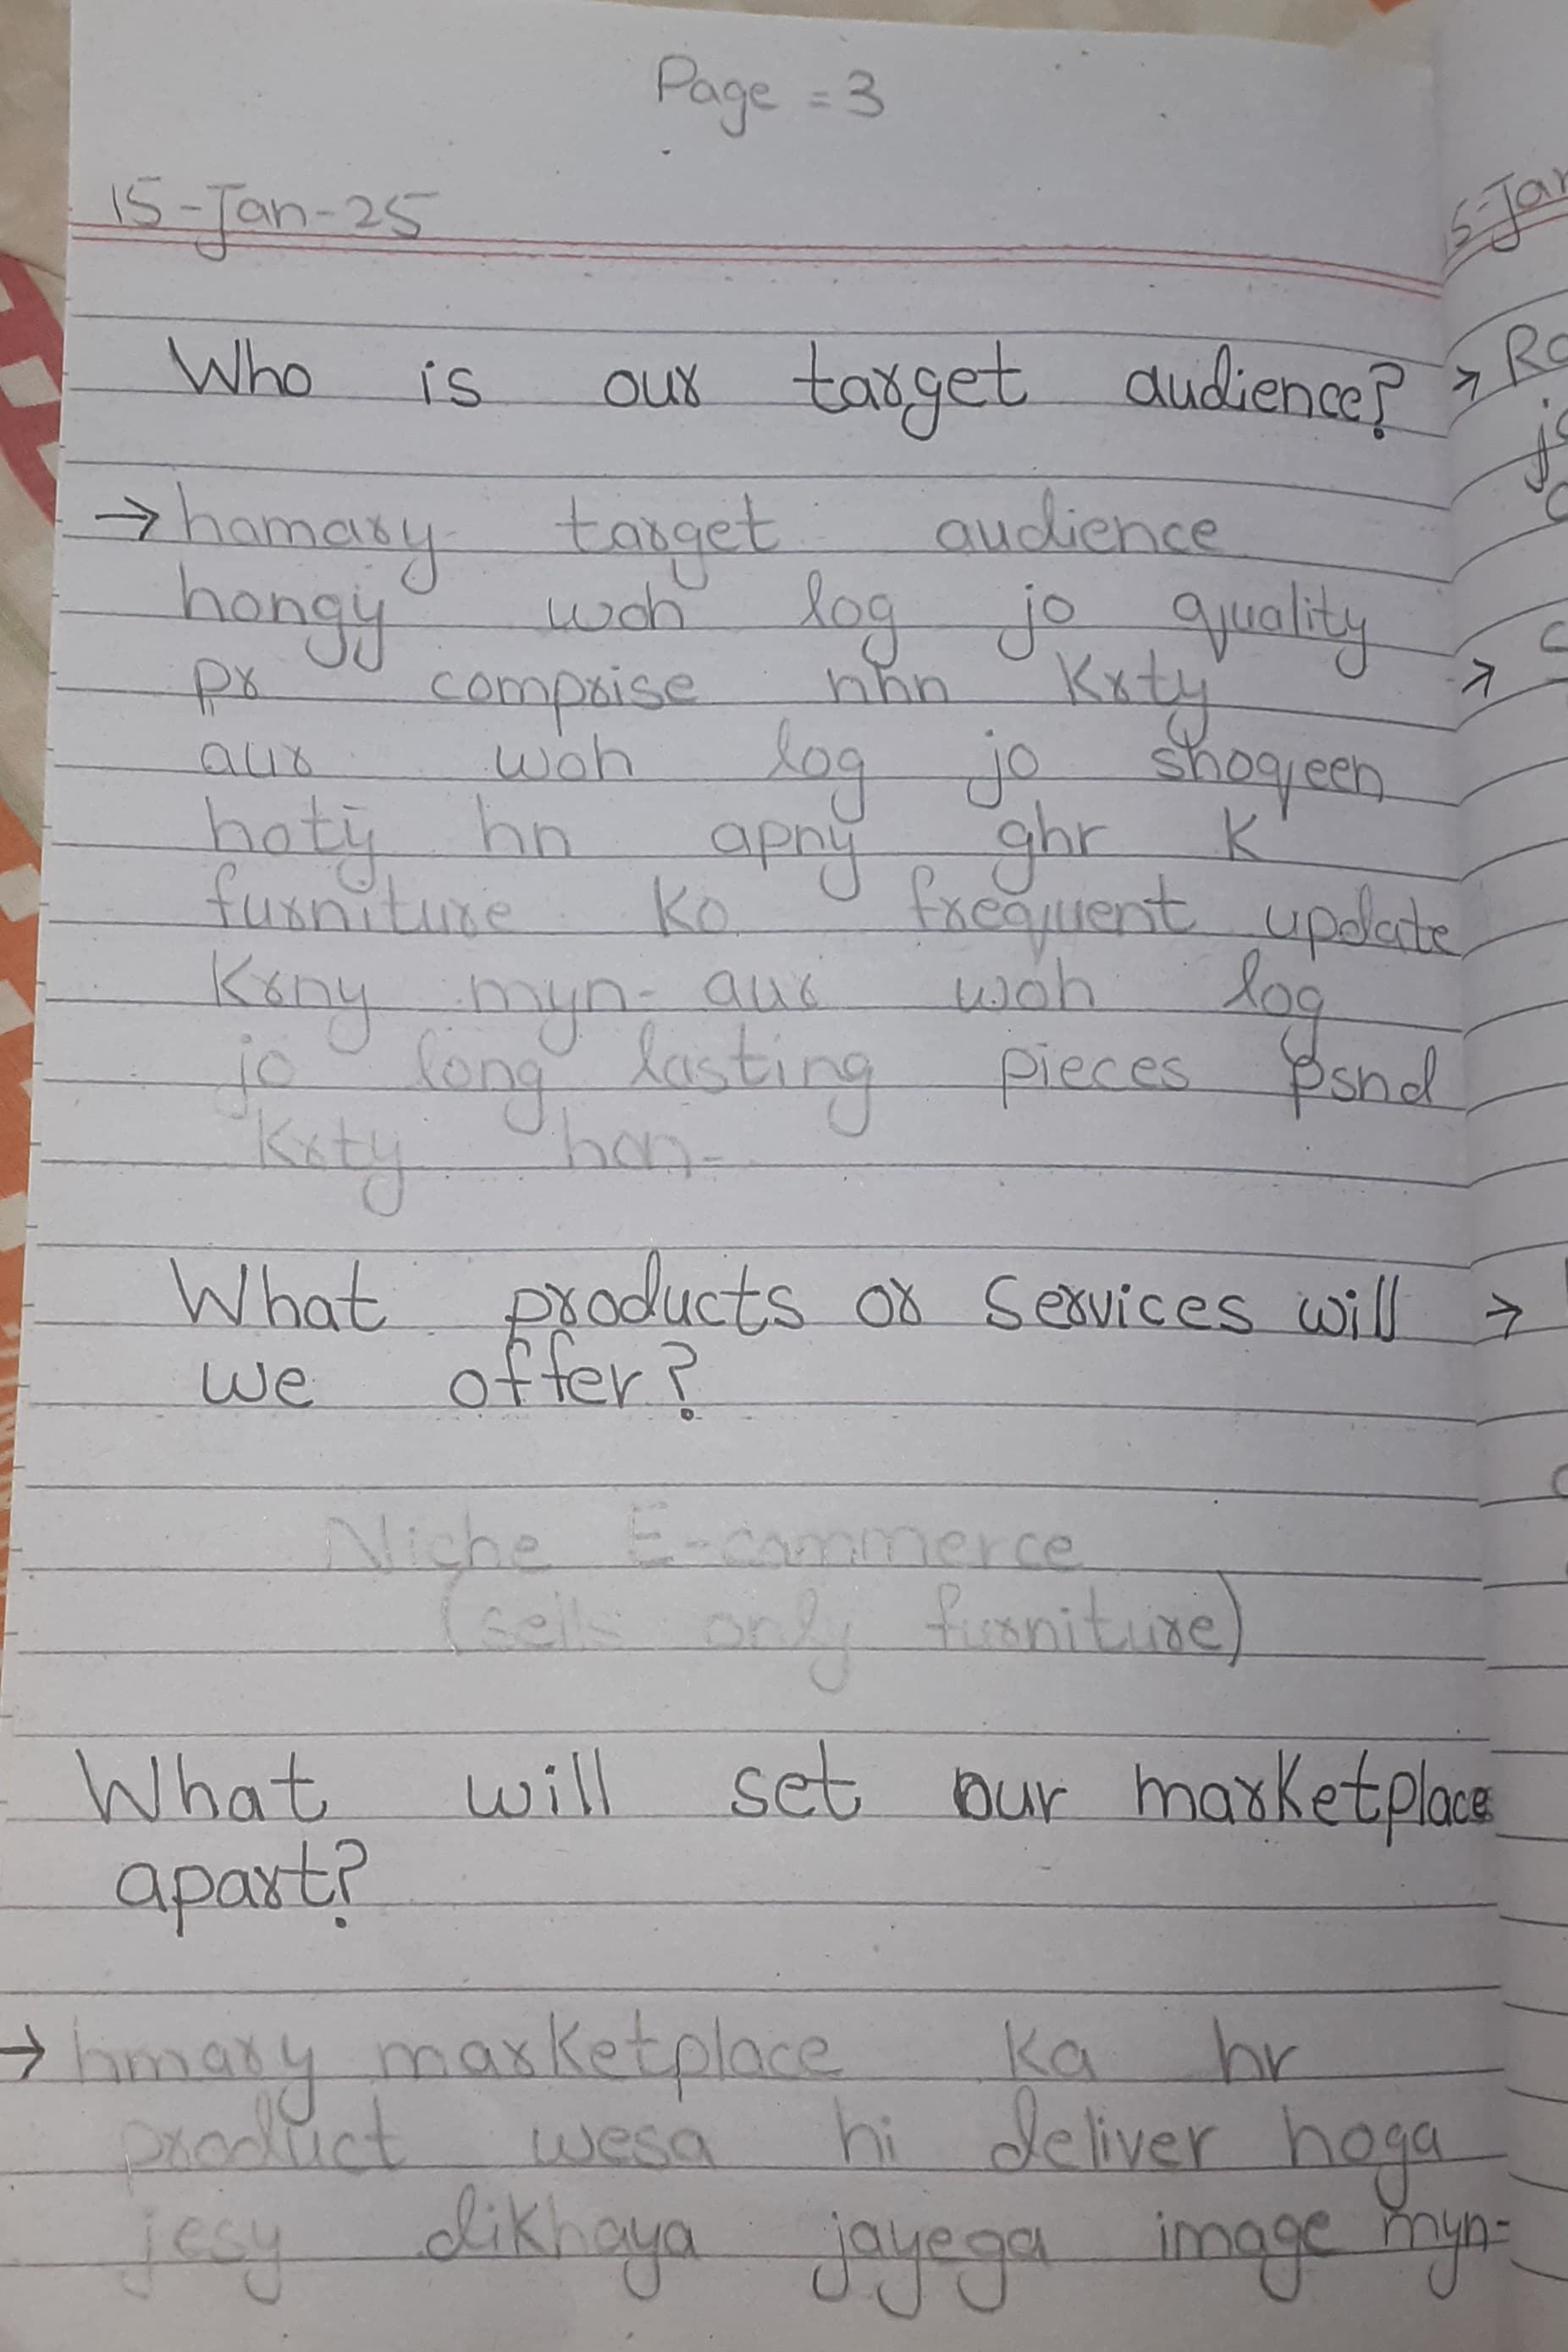 Page = 3
15-Jan-25
Who is our target audience?
→ hamary target audience
hongy woh log jo quality
pr comprise nhn Krty
aur woh log jo shoqeen
hoty hn apny ghr K
furniture ko frequent update
Krny myn- aur woh log
jo long lasting pieces psnd
Krty han-
What products or Services will
we offer?
Niche E-commerce
(sells only furniture)
What will set our marketplace
apart?
→ hmary marketplace ka hr
product wesa hi deliver hoga
jesy dikhaya jayega image myn-